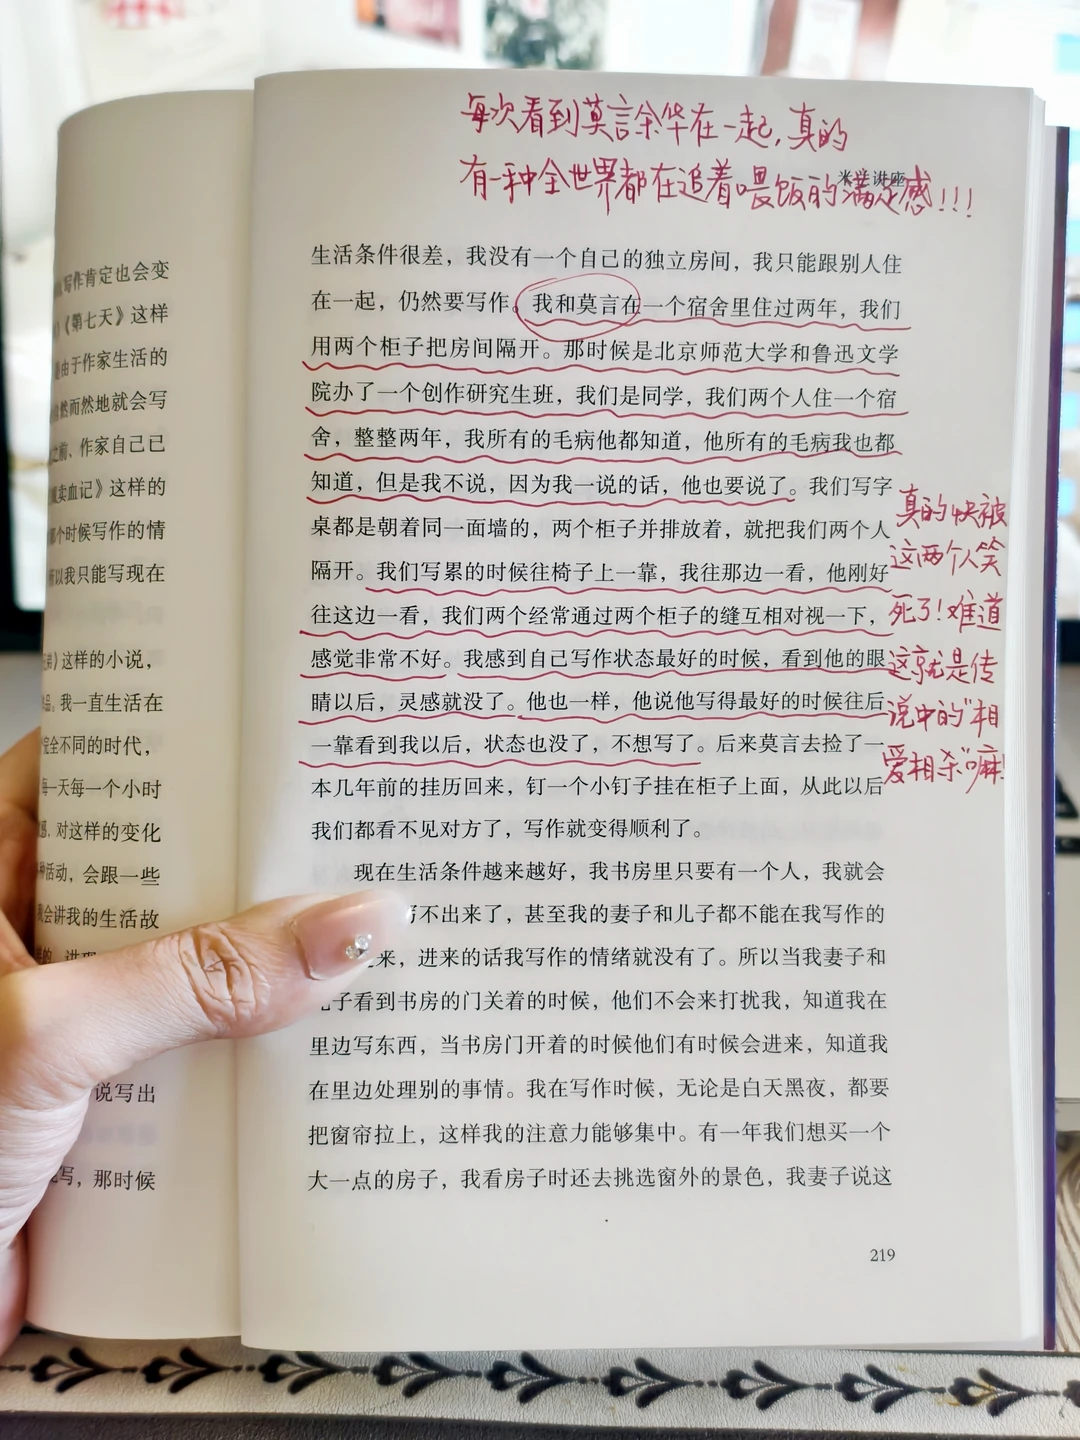 写作肯定也会变
《第七天》这样
是由于作家生活的
然而然地就会写
之前、作家自己已
卖血记》这样的
那个时候写作的情
所以我只能写现在
》这样的小说，
品。我一直生活在
完全不同的时代，
每一天每一个小时
对这样的变化
种活动，会跟一些
我会讲我的生活故
说写出
写，那时候
每次看到莫言余华在一起，真的
有一种全世界都在追着喂饭的满足感！！！
米兰讲座
生活条件很差，我没有一个自己的独立房间，我只能跟别人住
在一起，仍然要写作。我和莫言在一个宿舍里住过两年，我们
用两个柜子把房间隔开。那时候是北京师范大学和鲁迅文学
院办了一个创作研究生班，我们是同学，我们两个人住一个宿
舍，整整两年，我所有的毛病他都知道，他所有的毛病我也都
知道，但是我不说，因为我一说的话，他也要说了。我们写字
桌都是朝着同一面墙的，两个柜子并排放着，就把我们两个人
隔开。我们写累的时候往椅子上一靠，我往那边一看，他刚好
往这边一看，我们两个经常通过两个柜子的缝互相对视一下，
感觉非常不好。我感到自己写作状态最好的时候，看到他的眼
睛以后，灵感就没了。他也一样，他说他写得最好的时候往后
一靠看到我以后，状态也没了，不想写了。后来莫言去捡了一
本几年前的挂历回来，钉一个小钉子挂在柜子上面，从此以后
我们都看不见对方了，写作就变得顺利了。
现在生活条件越来越好，我书房里只要有一个人，我就会
写不出来了，甚至我的妻子和儿子都不能在我写作的
来，进来的话我写作的情绪就没有了。所以当我妻子和
儿子看到书房的门关着的时候，他们不会来打扰我，知道我在
里边写东西，当书房门开着的时候他们有时候会进来，知道我
在里边处理别的事情。我在写作时候，无论是白天黑夜，都要
把窗帘拉上，这样我的注意力能够集中。有一年我们想买一个
大一点的房子，我看房子时还去挑选窗外的景色，我妻子说这
真的快被
这两个人笑
死了！难道
这就是传
说中的“相
爱相杀”嘛！
219